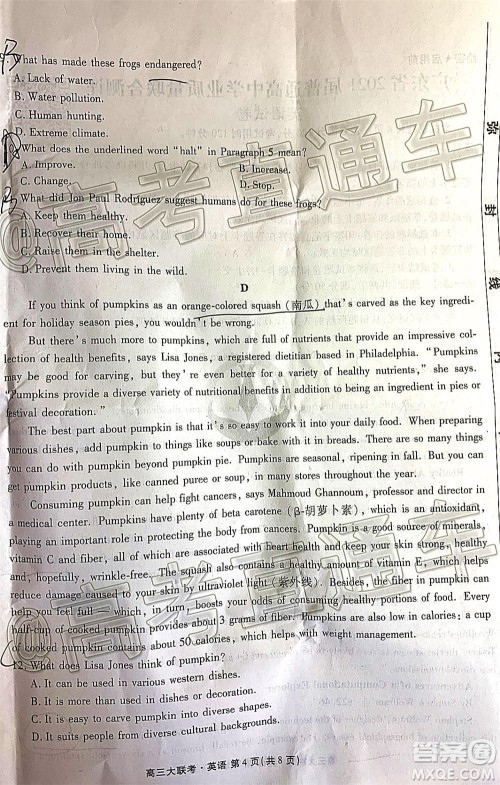 What has made these frogs endangered?
A. Lack of water.
B. Water pollution.
C. Human hunting.
D. Extreme climate.
What does the underlined word "halt" in Paragraph 5 mean?
A. Improve. B. Increase.
C. Change. D. Stop.
What did Jon Paul Rodríguez suggest humans do for these frogs?
A. Keep them healthy.
B. Recover their home.
C. Raise them in the shelter.
D. Prevent them living in the wild.
D
If you think of pumpkins as an orange-colored squash (南瓜) that's carved as the key ingredi-
ent for holiday season pies, you wouldn't be wrong.
But there's much more to pumpkins, which are full of nutrients that provide an impressive col-
lection of health benefits, says Lisa Jones, a registered dietitian based in Philadelphia. "Pumpkins
may be good for carving, but they're even better for a variety of healthy nutrients," she says.
"Pumpkins provide a diverse variety of nutritional benefits in addition to being an ingredient in pies or
festival decoration."
The best part about pumpkin is that it's so easy to work it into your daily food. When preparing
various dishes, add pumpkin to things like soups or bake with it in breads. There are so many things
you can do with pumpkin beyond pumpkin pie. Pumpkins are seasonal, ripening in fall. But you can
get pumpkin products, like canned puree or soup, in many stores throughout the year.
Consuming pumpkin can help fight cancers, says Mahmoud Ghannoum, professor and director in
a medical center. Pumpkins have plenty of beta carotene (β-胡萝卜素), which is an antioxidant,
playing an important role in protecting the body from cancers. Pumpkin is a good source of minerals,
vitamin C and fiber, all of which are associated with heart health and keep your skin strong, healthy
and, hopefully, wrinkle-free. The squash also contains a healthy amount of vitamin E, which helps
reduce damage caused to your skin by ultraviolet light (紫外线). Besides, the fiber in pumpkin can
help you feel full, which assists you in consuming healthy portions of food. Every
half-cup of cooked pumpkin provides about 3 grams of fiber. Pumpkins are also low in calories; a cup
of cooked pumpkin contains about 50 calories, which helps with weight management.
12. What does Lisa Jones think of pumpkin?
A. It can be used in various western dishes.
B. It is more than used in dishes or decoration.
C. It is easy to carve pumpkin into diverse shapes.
D. It suits people from diverse cultural backgrounds.
高三大联考·英语 第4页(共8页)
弥
封
线
内
@高考直通车
@高考直通车
答案圈
MXQE.COM